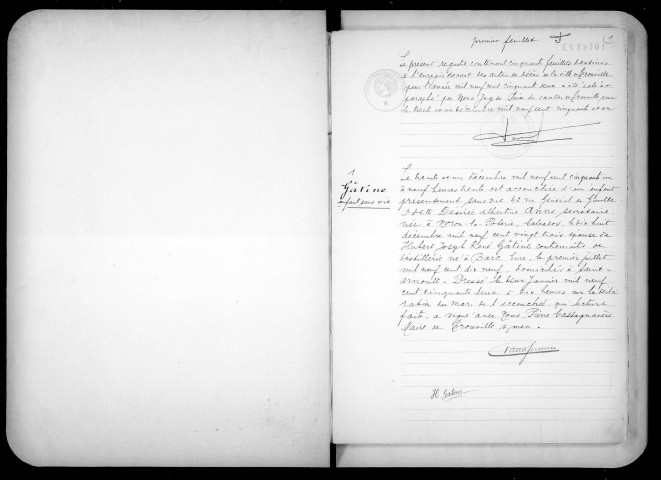 premier feuillet
Le présent registre contenant cinquante feuilles destinées
à l'enregistrement des actes de décès de la ville de Trouville
pour l'année mil neuf cent cinquante deux a été coté et
paraphé par Nous Juge de Paix du canton de Trouville
le trente et un décembre mil neuf cent cinquante et un
1
Gâtine
enfant sans vie
Le trente et un décembre mil neuf cent cinquante un
à neuf heures trente est accouchée d'un enfant
présentement sans vie 62 rue Général de Gaulle
Odette Désirée Albertine Anne, secrétaire
née à Noron-la-Poterie, Calvados, le dix huit
décembre mil neuf cent vingt trois épouse de
Hubert Joseph René Gâtine contremaître de
distillerie né à Barc Eure, le premier juillet
mil neuf cent dix neuf, domiciliés à Saint-
Arnoult - Dressé le deux janvier mil neuf
cent cinquante deux à dix heures sur la décla
ration du mari de l'accouchée qui lecture
faite, a signé avec Nous, Pierre Cassagnavère
Maire de Trouville s/mer.
H Gatine